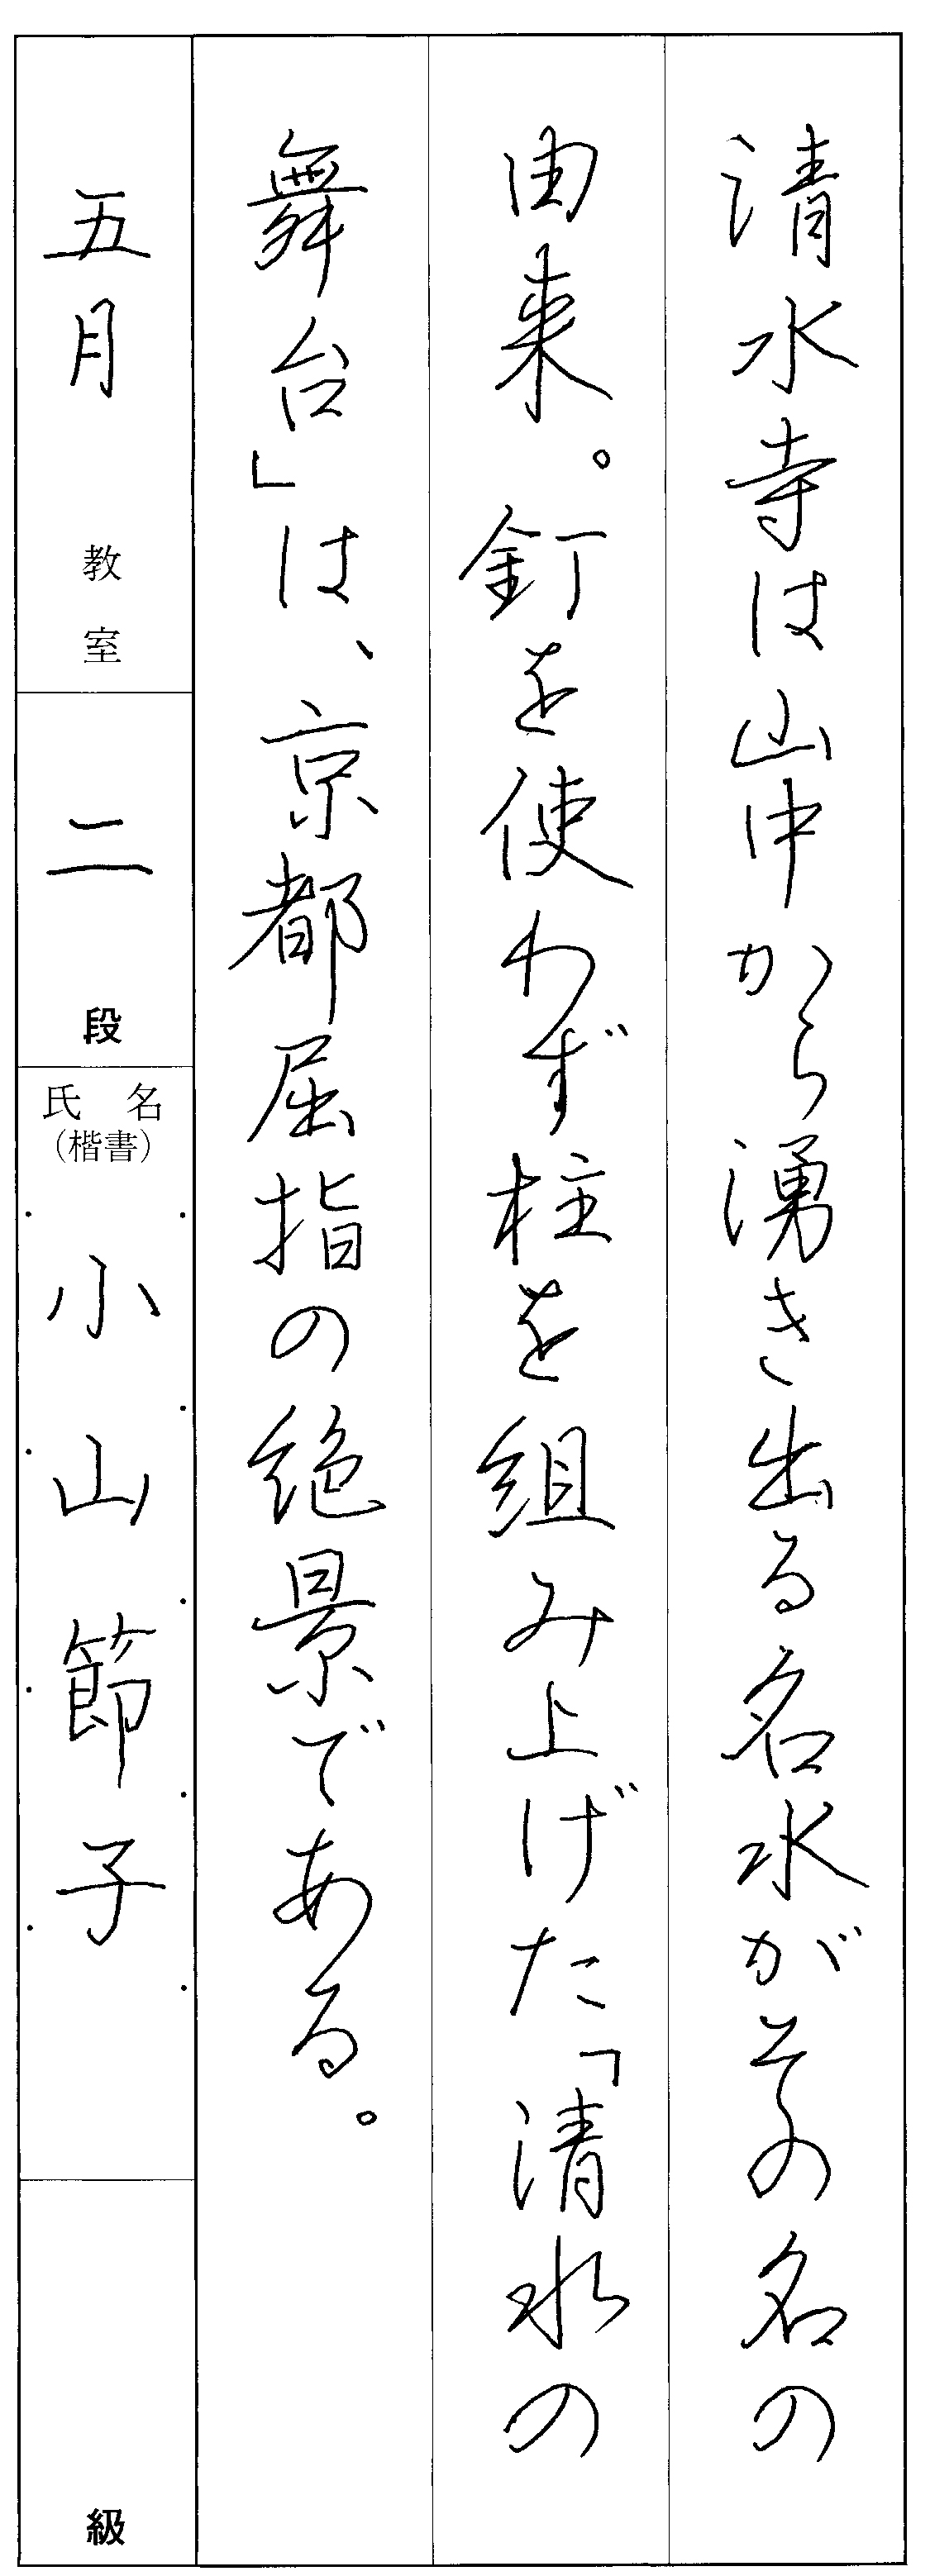 清水寺は山中から湧き出る名水がその名の
由来。釘を使わず柱を組み上げた「清水の
舞台」は、京都屈指の絶景である。
五月 教室
二 段
氏名
(楷書)
小山節子
級